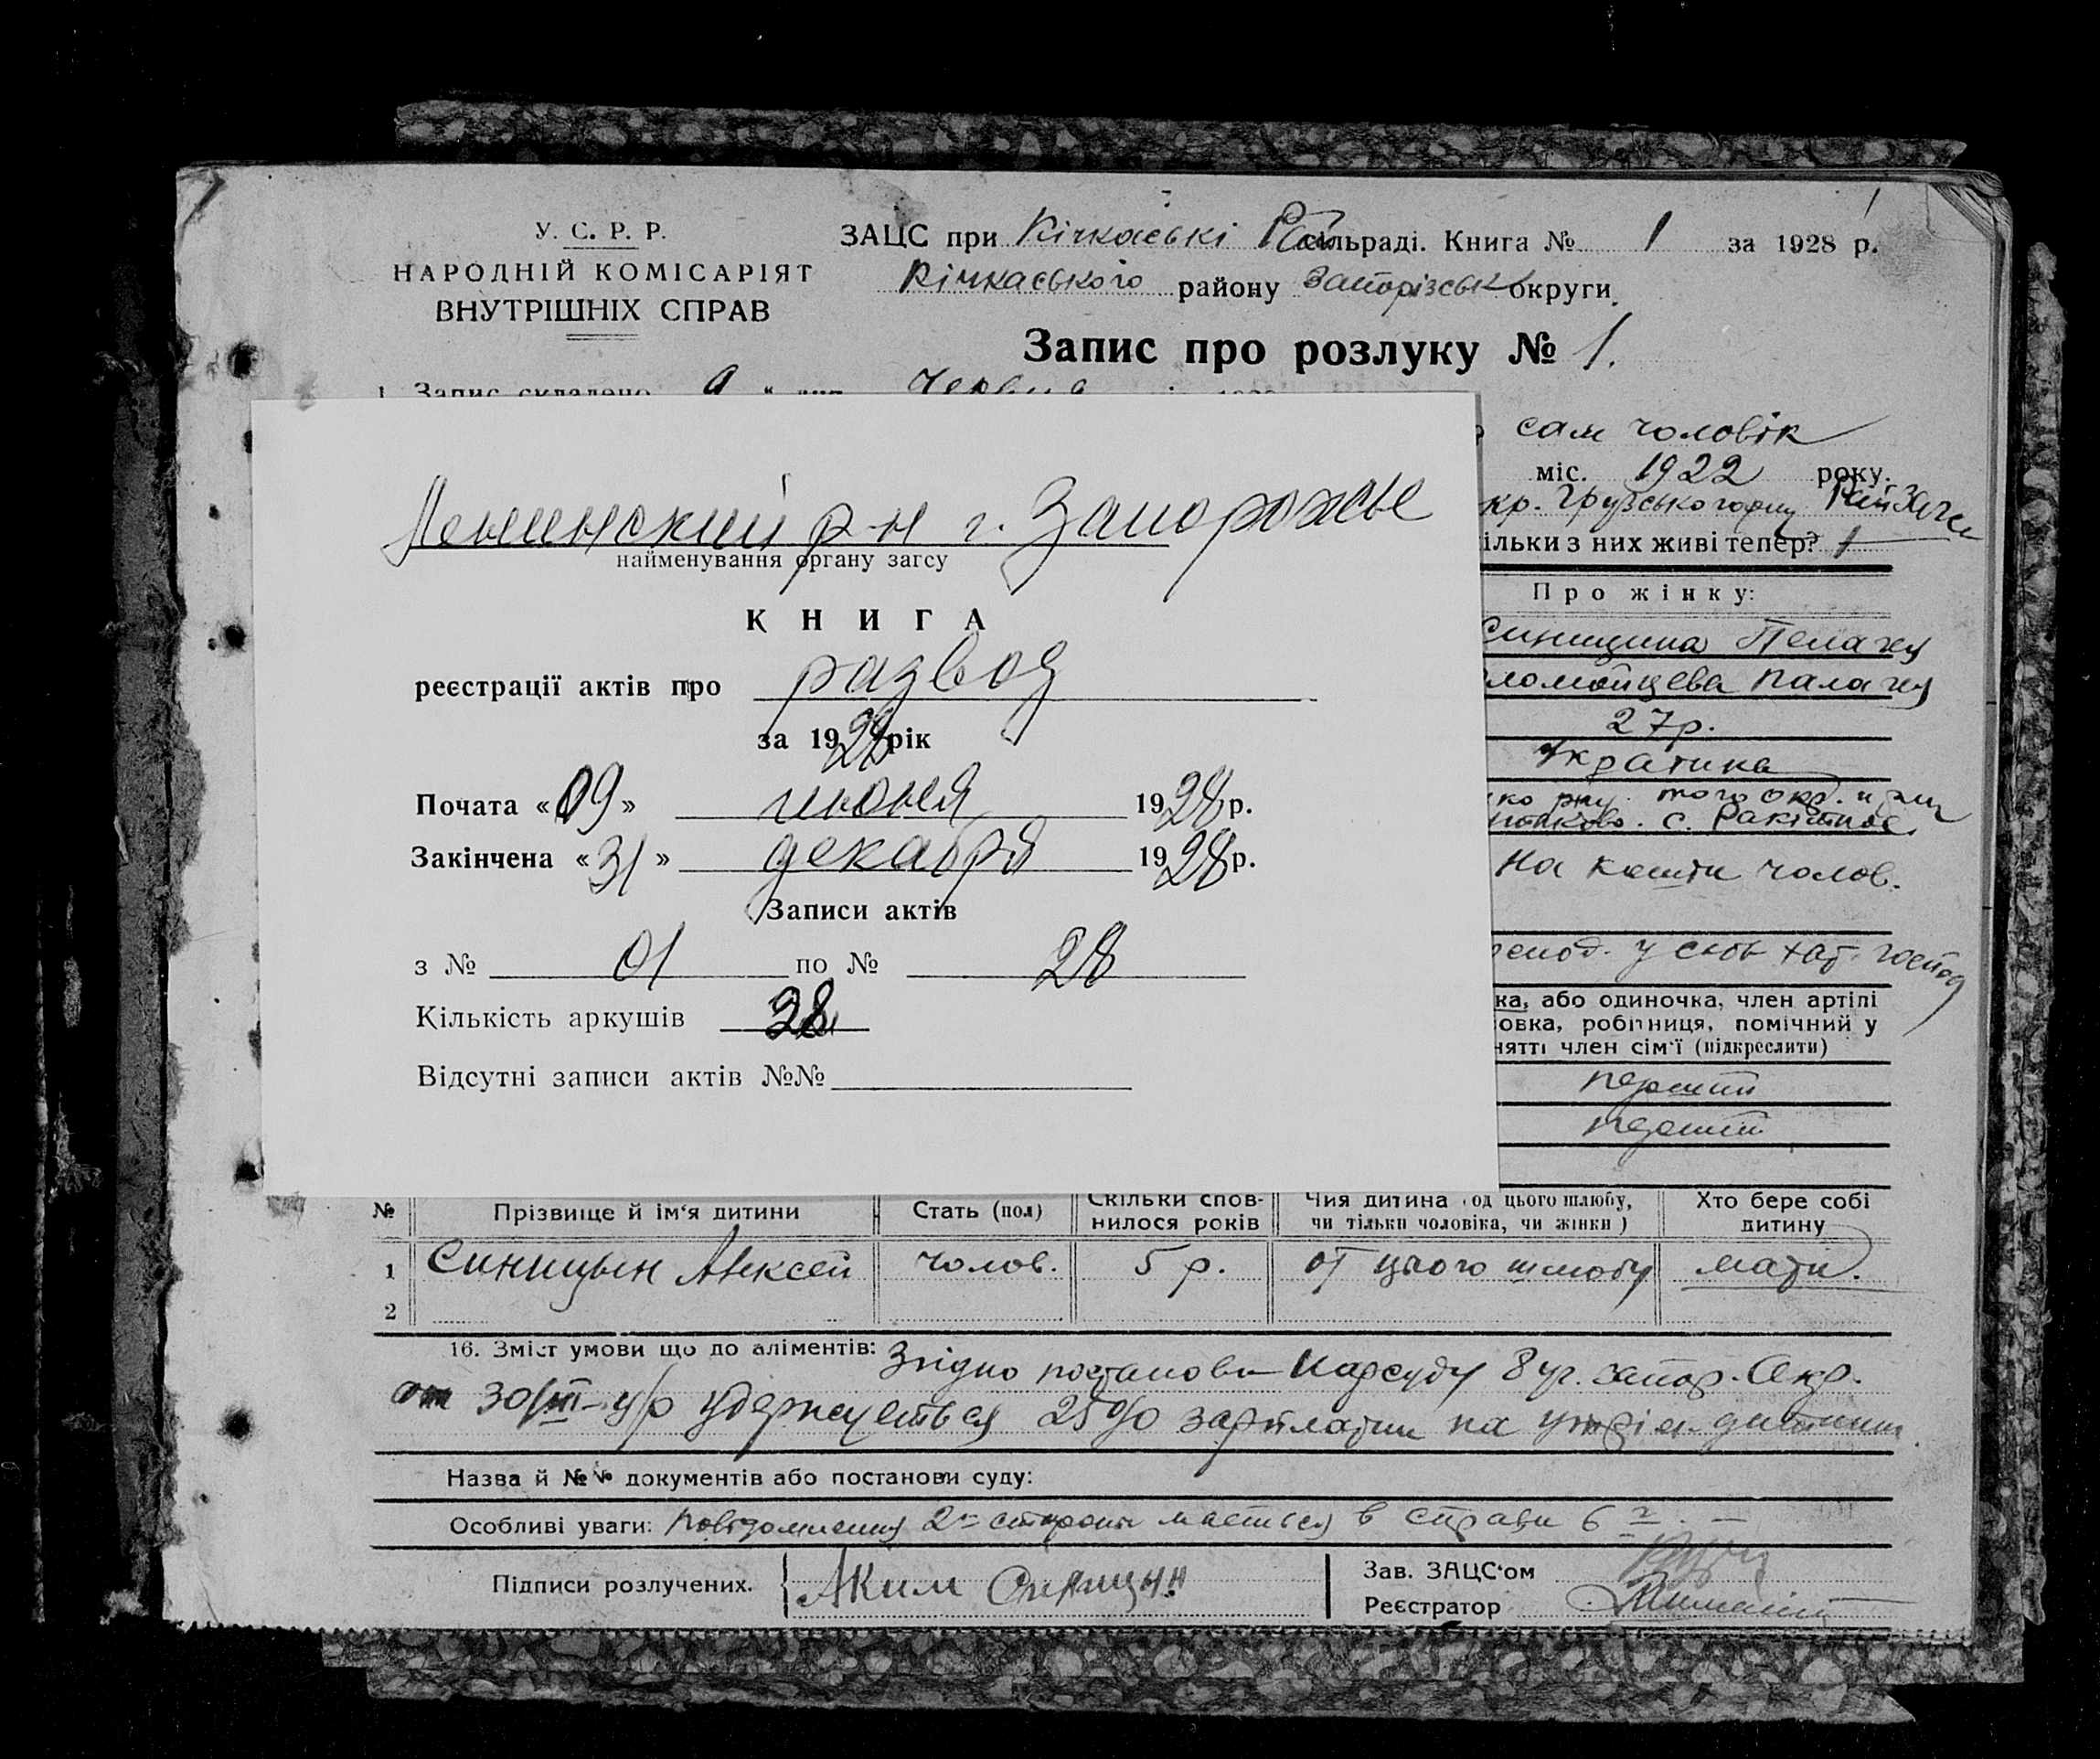 У. С. Р. Р.
НАРОДНІЙ КОМІСАРІЯТ
ВНУТРІШНІХ СПРАВ
ЗАЦС при Кічкаські Рай сільраді. Книга № 1 за 1928 р.
Кічкаського району Запорізськ округи.
Запис про розлуку № 1.
1. Запис складено 9 " дня Червня
сам чоловік
міс. 1922 року.
кр.
ільки з них живі тепер? 1
Про жінку:
Синицина Пелагея
27 р.
на кошти чолов.
ка, або одиночка, член артілі
овка, робітниця, помічний у
нятті член сім'ї (підкреслити)
перший
перший
Ленинский р-н г. Запорожье
найменування органу загсу
КНИГА
реєстрації актів про развод
за 1928 рік
Почата «09» июня 1928 р.
Закінчена «31» декабря 1928 р.
Записи актів
з № 01 по № 28
Кількість аркушів 28
Відсутні записи актів №№
№ Прізвище й ім'я дитини Стать (пол) Скільки спов- нилося років Чия дитина (од цього шлюбу, чи тільки чоловіка, чи жінки) Хто бере собі дитину
1 Синицын Алексей чолов. 5 р. от цього шлюбу мати.
2
16. Зміст умови що до аліментів: Згідно постанови Нарсуду 8 уч. запор. Окр.
от 30/III-ц/р удержується 25% зарплати на утрім. дитини.
Назва й №№ документів або постанови суду:
Особливі уваги: Повідомлення 2й сторони мається в справі
Підписи розлучених. Аким Синицын
Зав. ЗАЦС'ом
Реєстратор